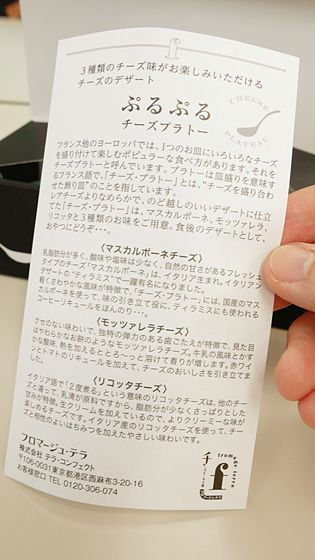 3種類のチーズ味がお楽しみいただける
チーズのデザート
ぷるぷる
チーズプラトー
CHEESE
PLATEAU
フランス他のヨーロッパでは、1つのお皿にいろいろなチーズ
を盛り付けて楽しむポピュラーな食べ方があります。それを
チーズプラトーと呼んでいます。プラトーは皿盛りを意味す
るフランス語で、「チーズ・プラトー」とは、“チーズを盛り合わ
せた飾り皿”のことを指しています。
レアチーズよりなめらかで、のど越しのいいデザートに仕立
てた「チーズ・プラトー」は、マスカルポーネ、モッツァレラ、
リコッタと3種類のお味をご用意。食後のデザートとして、
おやつにどうぞ・・・。
〈マスカルポーネチーズ〉
乳脂肪分が多く、酸味や塩味は少なく、自然の甘さがあるフレッシュ
タイプのチーズ「マスカルポーネ」は、イタリア生まれ。イタリアン
デザートの“ティラミス”で一躍有名になりました。
軽くさわやかな風味が特徴で、「チーズ・プラトー」には、国産のマス
カルポーネを使って、味の引き立て役に、ティラミスにも使われる
コーヒーリキュールをほんのり・・・。
〈モッツァレラチーズ〉
クセのない味わいで、独特の弾力のある歯ごたえが特徴で、見た目
はやわらかなお餅のような姿のチーズです。牛乳の風味とかす
かな酸味、熱を加えるととろ〜っと溶けて香りが増します。赤ワイ
ンとトマトのリキュールを加えて、チーズのおいしさを引き立てま
した。
〈リコッタチーズ〉
イタリア語で「2度煮る」という意味のリコッタチーズは、他のチー
ズと違って、乳清が原料ですから、脂肪分が少なくさっぱりとした
甘みが特徴。生クリームを加えているので、よりクリーミーな味が
楽しめるチーズです。イタリア産のリコッタチーズを使って、チー
ズと相性のよいはちみつを加えたやさしい味わいです。
フロマージュ・テラ
株式会社 テラ・コンフェクト
〒106-0031東京都港区西麻布3-20-16
お客様窓口 TEL 0120-306-074
from the terra